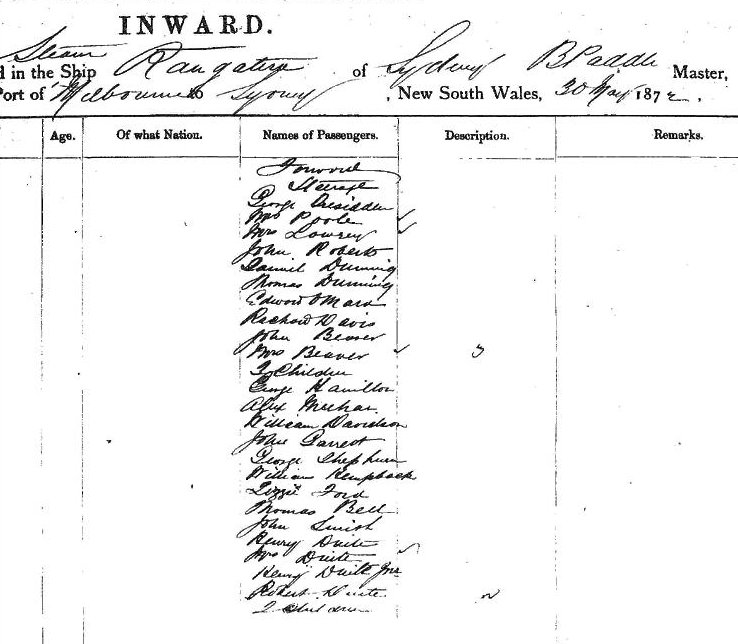 INWARD.
d in the Ship Steam Rangatira of Sydney B Paddle Master,
Port of Melbourne to Sydney, New South Wales, 30 May 1872.
Age. Of what Nation. Names of Passengers. Description. Remarks.
Forward
Steerage
George
Mrs Poole
Mrs Lowrey
John Roberts
Daniel Dunning
Thomas Dunning
Edward OMara
Richard Davis
John Beaver
Mrs Beaver
2 Children
George Hamilton
Alex Meehan
William Davidson
John Garrest
George
William Kempback
Lizzie Ford
Thomas Bell
John Smith
Henry Duite
Mrs Duite
Henry Duite Jnr
Robert Duite
2 Children